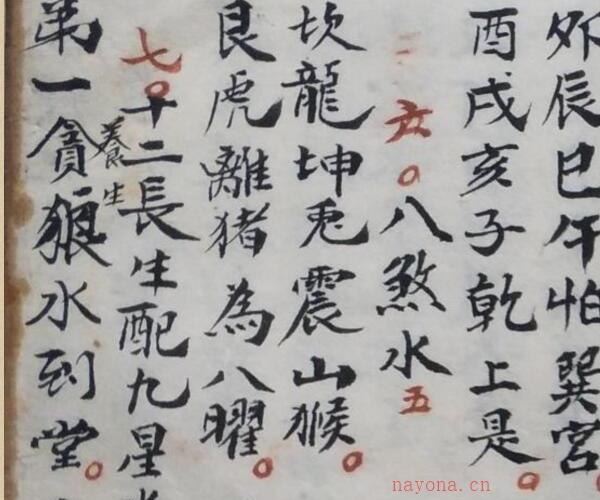 卯辰巳午怕巽宮
酉戌亥子乾上是
六○八煞水五
坎龍坤兎震山猴
艮虎離猪為八曜
七○十二長生配九星水
養生
第一貪狼水到堂
nayona.cn